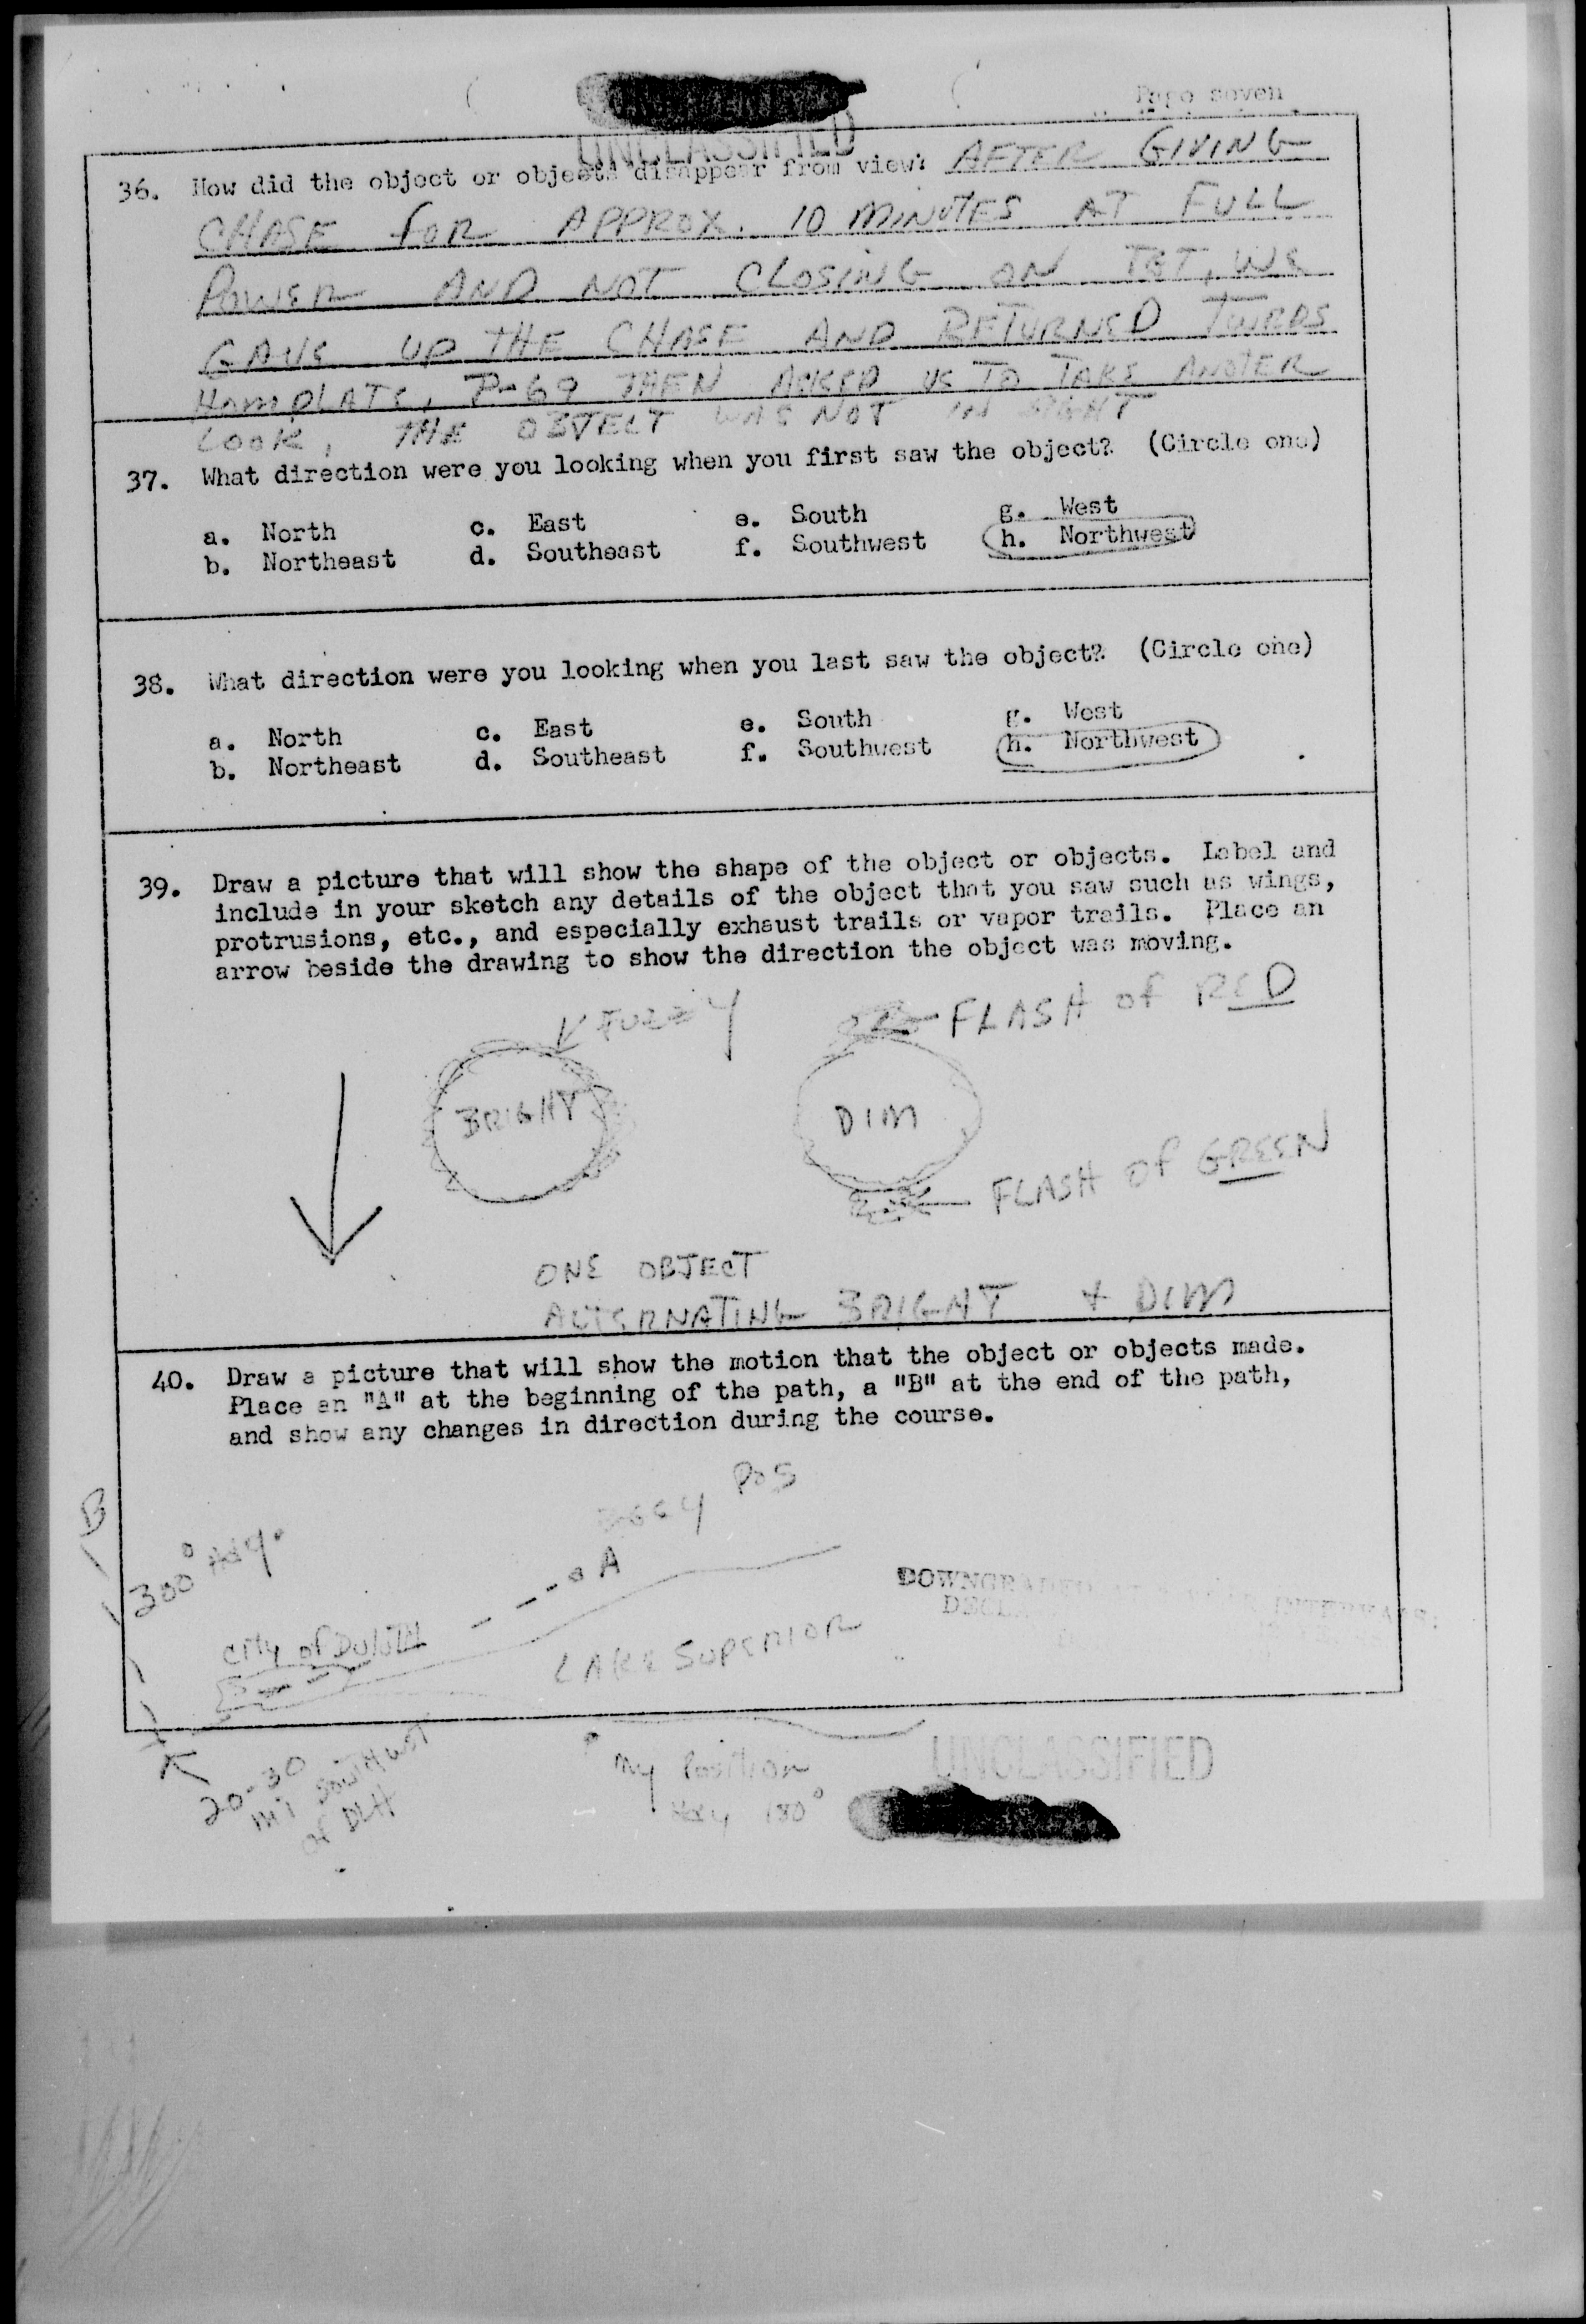 Page seven
UNCLASSIFIED
36. How did the object or objects disappear from view? AFTER GIVING
CHASE FOR APPROX. 10 MINUTES AT FULL
POWER AND NOT CLOSING ON TGT, WE
GAVE UP THE CHASE AND RETURNED TWRDS
HOMPLATE, P-69 THEN ASKED US TO TAKE ANOTER
LOOK, THE OBJECT WAS NOT IN SIGHT
37. What direction were you looking when you first saw the object? (Circle one)
a. North c. East e. South g. West
b. Northeast d. Southeast f. Southwest h. Northwest
38. What direction were you looking when you last saw the object? (Circle one)
a. North c. East e. South g. West
b. Northeast d. Southeast f. Southwest h. Northwest
39. Draw a picture that will show the shape of the object or objects. Label and
include in your sketch any details of the object that you saw such as wings,
protrusions, etc., and especially exhaust trails or vapor trails. Place an
arrow beside the drawing to show the direction the object was moving.
FUZZY
FLASH of RED
BRIGHT
DIM
FLASH OF GREEN
ONE OBJECT
ALTERNATING BRIGHT + DIM
40. Draw a picture that will show the motion that the object or objects made.
Place an "A" at the beginning of the path, a "B" at the end of the path,
and show any changes in direction during the course.
B
300° Hdg.
POS
A
CITY of DULUTH
LAKE SUPERIOR
20-30
mi SOUTHWEST
of DLH
My Position
Hdg 180°
UNCLASSIFIED